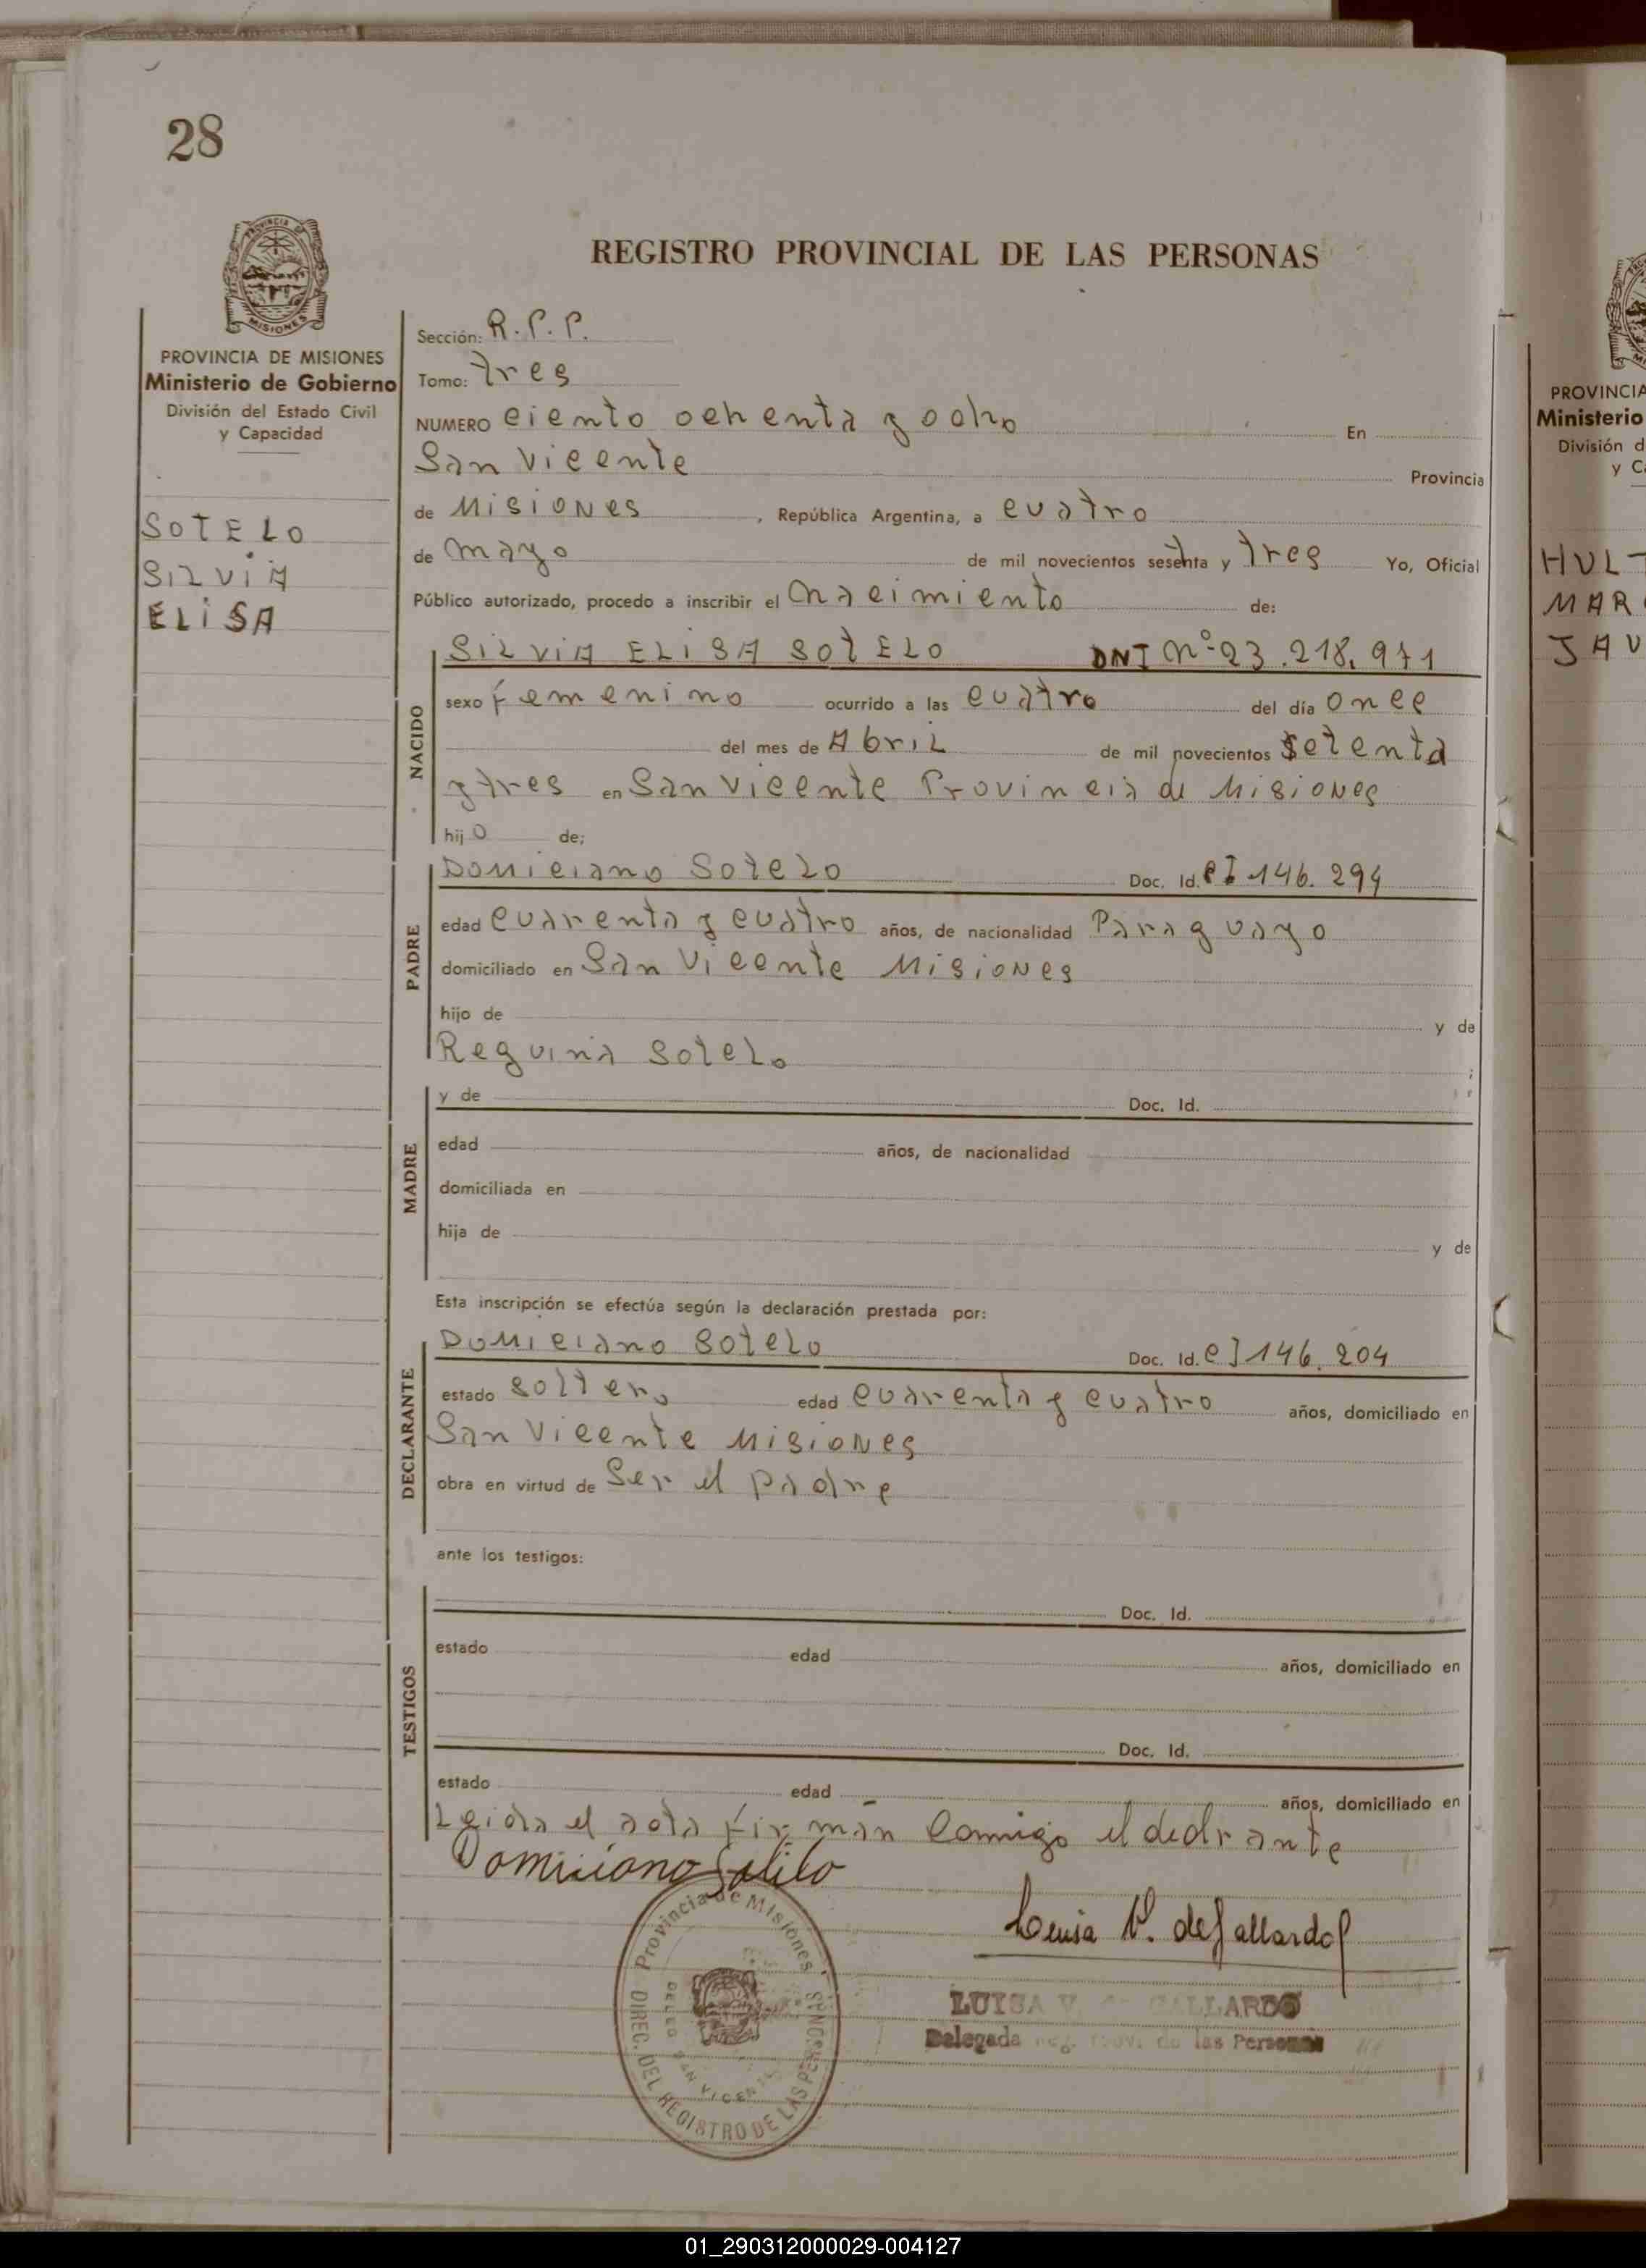 28
REGISTRO PROVINCIAL DE LAS PERSONAS
PROVINCIA DE MISIONES
Ministerio de Gobierno
División del Estado Civil
y Capacidad
SOTELO
SILVIA
ELISA
Sección: R.P.P.
Tomo: tres
NUMERO ciento ochenta y ocho En
San Vicente Provincia
de Misiones, República Argentina, a cuatro
de mayo de mil novecientos setenta y tres Yo, Oficial
Público autorizado, procedo a inscribir el nacimiento de:
NACIDO
SILVIA ELISA SOTELO DNI Nº 23.218.971
sexo femenino ocurrido a las cuatro del día once
del mes de Abril de mil novecientos setenta
y tres en San Vicente Provincia de Misiones
hijo de;
PADRE
Domiciano Sotelo Doc. Id. CI 146.294
edad cuarenta y cuatro años, de nacionalidad Paraguayo
domiciliado en San Vicente Misiones
hijo de y de
Reguina Sotelo ;
MADRE
y de Doc. Id.
edad años, de nacionalidad
domiciliada en
hija de y de
Esta inscripción se efectúa según la declaración prestada por:
DECLARANTE
Domiciano Sotelo Doc. Id. CI 146.204
estado soltero edad cuarenta y cuatro años, domiciliado en
San Vicente Misiones
obra en virtud de Ser el padre
ante los testigos:
TESTIGOS
Doc. Id.
estado edad años, domiciliado en
Doc. Id.
estado edad años, domiciliado en
Leida el acta firman Conmigo el
Domiciano Sotelo
Luisa V. de Gallardo
Provincia de Misiones
DIREC. DEL REGISTRO DE LAS PERSONAS
DELEG SAN VICENTE
LUISA V. de GALLARDO
Delegada Reg. Prov. de las Personas
PROVINCIA
Ministerio
División d
y C
HULT
MAR
JAV
01_290312000029-004127